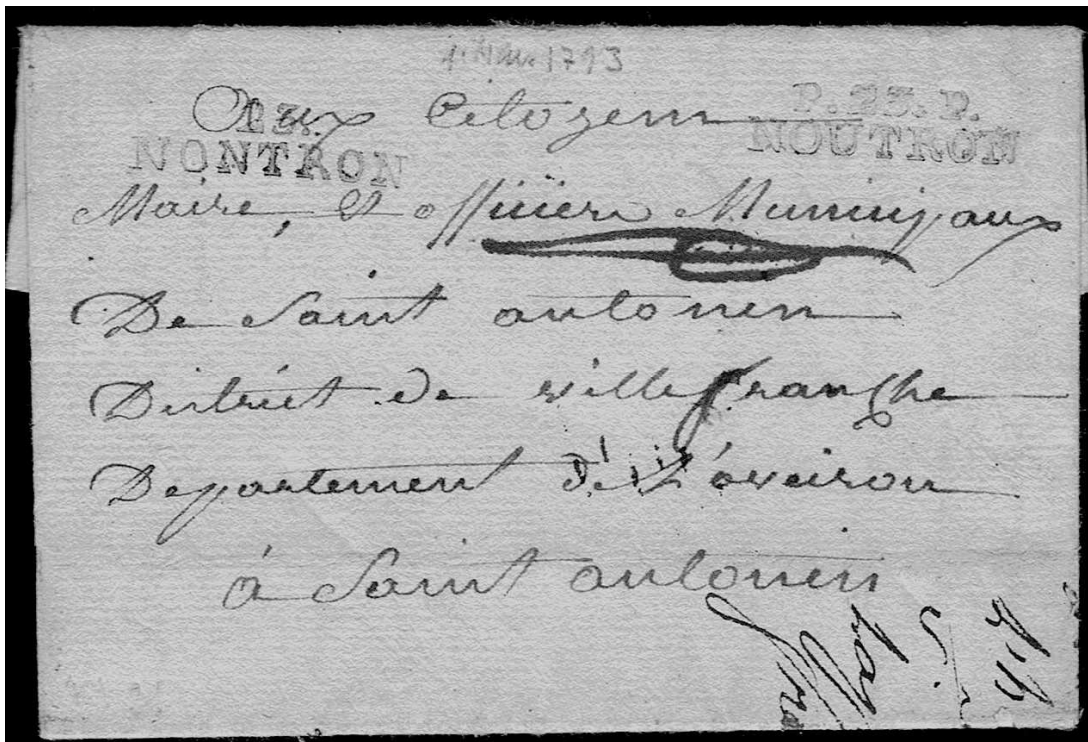 1793
Aux Citoyens
23.
NONTRON
P.23.P.
NOUTRON
Maire, et officiers Municipaux
De Saint antonin
District de villefranche
Departement de L'aveiron
à Saint antonin